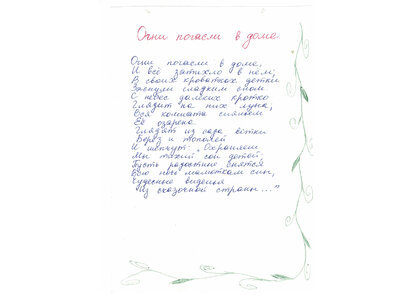 Огни погасли в доме.
Огни погасли в доме,
И всё затихло в нём;
В своих кроватках детки
Заснули сладким сном.
С небес далёких кротко
Глядит на них луна;
Вся комната сияньем
Её озарена.
Глядят из сада ветки
Берёз и тополей
И шепчут: "Охраняем
Мы тихий сон детей;
Пусть радостные снятся
Всю ночь малюткам сны,
Чудесные виденья
Из сказочной страны..."